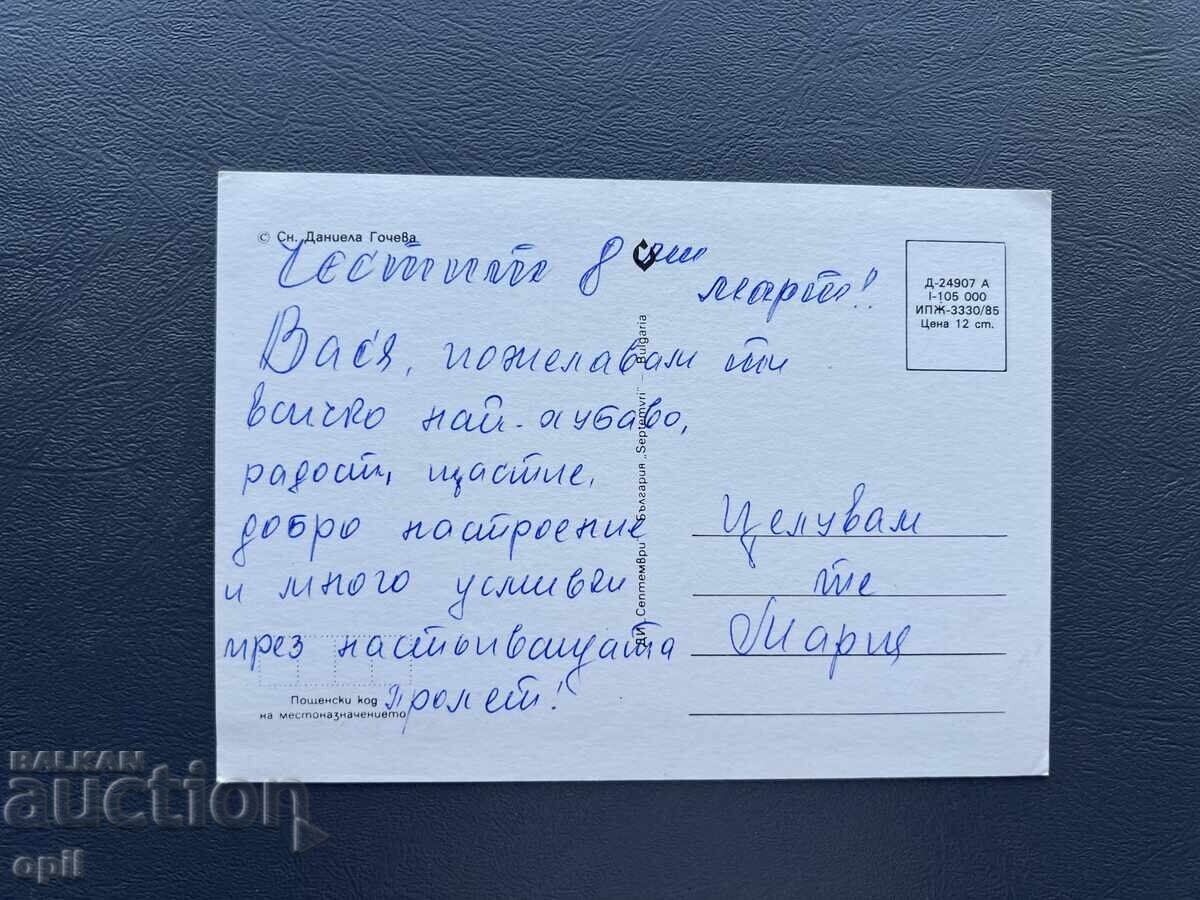 © Сн. Даниела Гочева
Честит 8 ми
март!!
Вася, пожелавам ти
всичко най-хубаво,
радост, щастие,
добро настроение
и много усмивки
през настъпващата
Пролет!
Пощенски код
на местоназначението
ДИ „Септември" България „Septemvri" – Bulgaria
Д-24907 А
I-105 000
ИПЖ-3330/85
Цена 12 ст.
Целувам
те
Мария
BALKAN
auction
opil